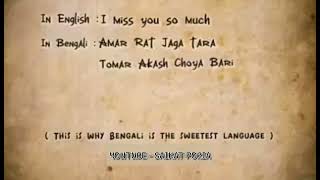 In English : I miss you so much
In Bengali : Amar Rat Jaga Tara
Tomar Akash Choya Bari
( This is why Bengali is the sweetest language )
YOUTUBE - SAIKAT